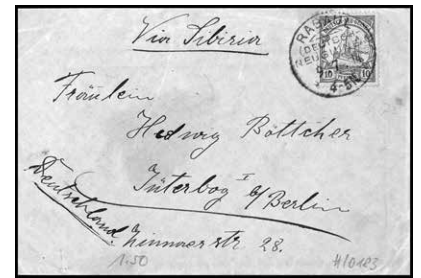 Via Sibiria
RABAUL
(DEUTSCH-
NEUGUINEA)
4-5N
10 10
Fräulein
Hedwig Böttcher
Jüterbog I b/Berlin
Deutschland.
Zinnaer str 28.
1.50
H/0123